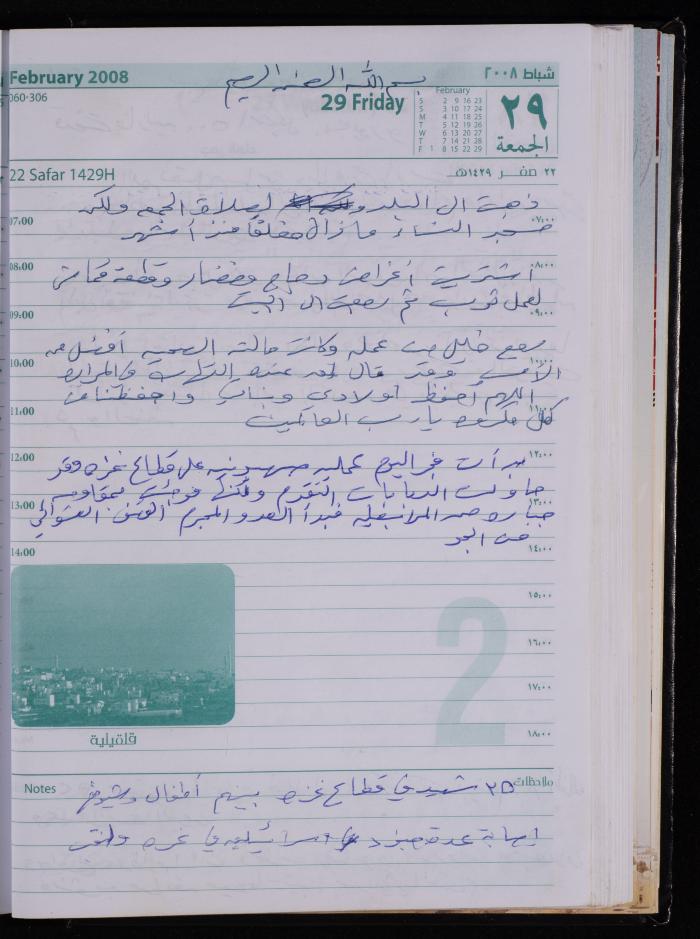 بسم الله الرحمن الرحيم
February 2008
شباط ٢٠٠٨
060-306
29 Friday
February
S 2 9 16 23
S 3 10 17 24
M 4 11 18 25
T 5 12 19 26
W 6 13 20 27
T 7 14 21 28
F 1 8 15 22 29
٢٩
الجمعة
22 Safar 1429H
٢٢ صفر ١٤٢٩هـ
ذهبت الى البلد لصلاة الجمعه ولكن
07:00
٠٧:٠٠
مسجد النساء ما زال مغلقا منذ أشهر
08:00
٠٨:٠٠
اشتريت أغراض دجاج وخضار وقطعة قماش
لعمل ثوب ثم رجعت الى البيت
09:00
٠٩:٠٠
رجع خليل من عمله وكانت حالته الصحيه أفضل من
10:00
١٠:٠٠
الأمس وقد قال عنده التهاب في المراره
اللهم احفظ أولادي وبناتي واحفظنا من
11:00
١١:٠٠
كل مكروه يا رب العالمين
12:00
١٢:٠٠
بدأت فجر اليوم عمليه صهيونيه على قطاع غزه وقد
حاولت الدبابات التقدم ولكنها فوجئت بمقاومه
13:00
١٣:٠٠
جباره فبدأ العدو المجرم القصف العشوائي
من الجو
14:00
١٤:٠٠
١٥:٠٠
١٦:٠٠
١٧:٠٠
١٨:٠٠
2
قلقيلية
Notes
ملاحظات
٣٥ شهيد في قطاع غزه بينهم أطفال وشيوخ
اصابة عدة جنود اسرائيليه في غزه